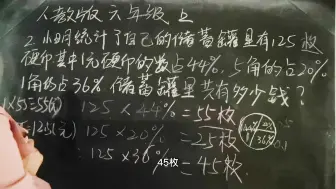 人教版 六年级 上
2.小明统计了自己的储蓄罐里有125枚
硬币其中1元硬币的数占44%.5角的占20%
1角的占36%储蓄罐里共有多少钱?
1×55=55(元) 125×44%=55枚
=12.5(元) 125×20%=25枚
125×36%=45枚
36%
45枚